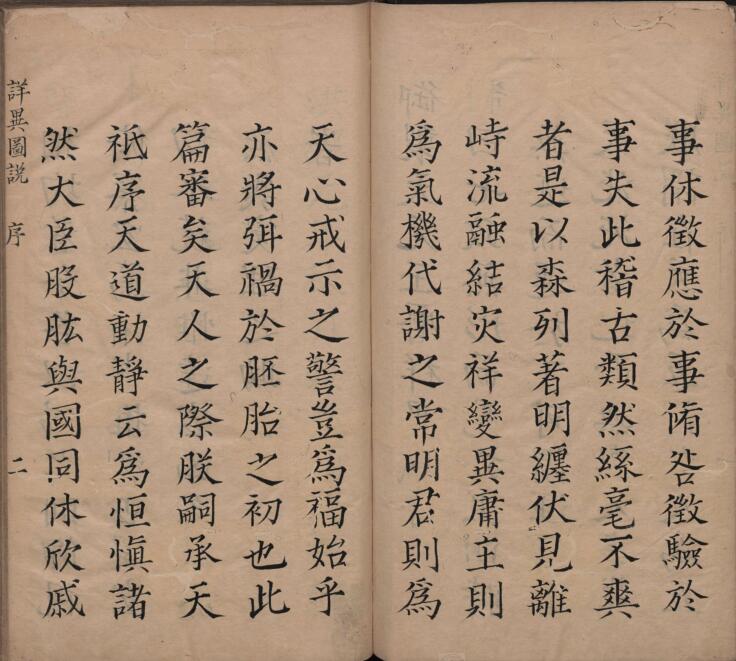 事休徵應於事脩咎徵驗於
事失此稽古類然絲毫不爽
者是以森列著明纏伏見離
峙流融結灾祥變異庸主則
爲氣機代謝之常明君則爲
天心戒示之警豈爲福始乎
亦將弭禍於胚胎之初也此
篇審矣天人之際朕嗣承天
祗序天道動靜云爲恒愼諸
然大臣股肱與國同休欣戚
詳異圖説 序 二